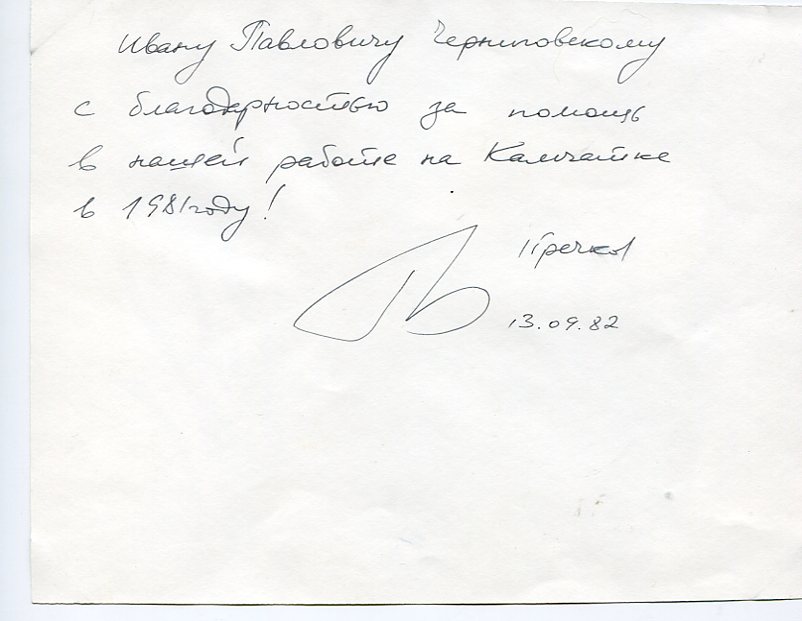 Ивану Павловичу Черниповскому
с благодарностью за помощь
в нашей работе на Камчатке
в 1981 году!
13.09.82